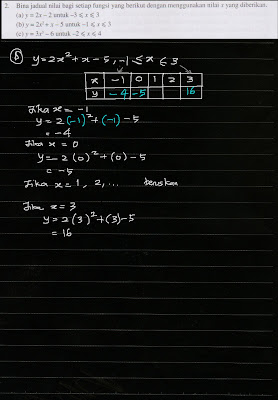 2. Bina jadual nilai bagi setiap fungsi yang berikut dengan menggunakan nilai x yang diberikan.
(a) y = 2x − 2 untuk −3 ≤ x ≤ 3
(b) y = 2x² + x − 5 untuk −1 ≤ x ≤ 3
(c) y = 3x³ − 6 untuk −2 ≤ x ≤ 4
(b) y = 2x² + x − 5, −1 ≤ x ≤ 3
x −1 0 1 2 3
y −4 −5 16
Jika x = −1
y = 2(−1)² + (−1) − 5
= −4
Jika x = 0
y = 2(0)² + (0) − 5
= −5
Jika x = 1, 2, ... teruskan
Jika x = 3
y = 2(3)² + (3) − 5
= 16